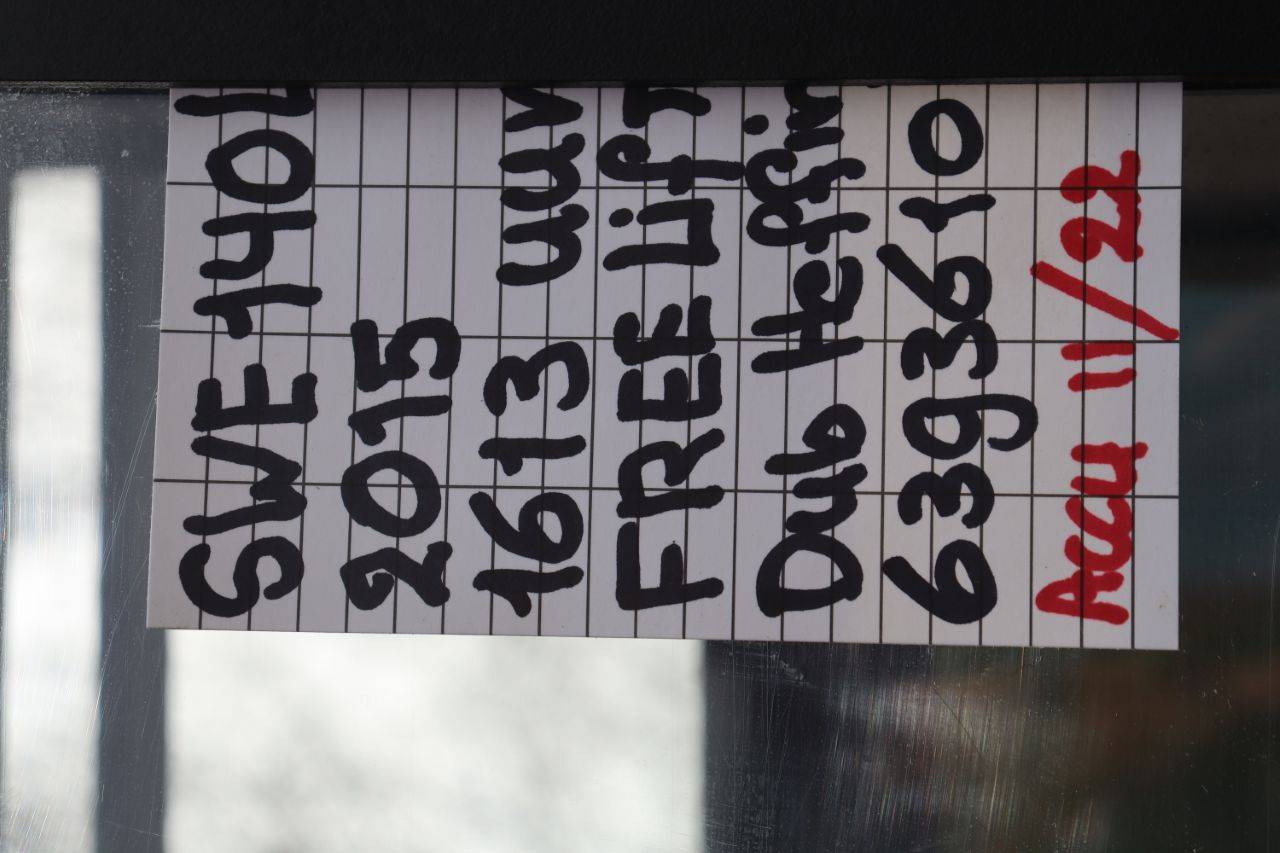 SWE 140L
2015
1613 uuv
FREE Lift
Dub Heffin
6393610
Accu 11/22